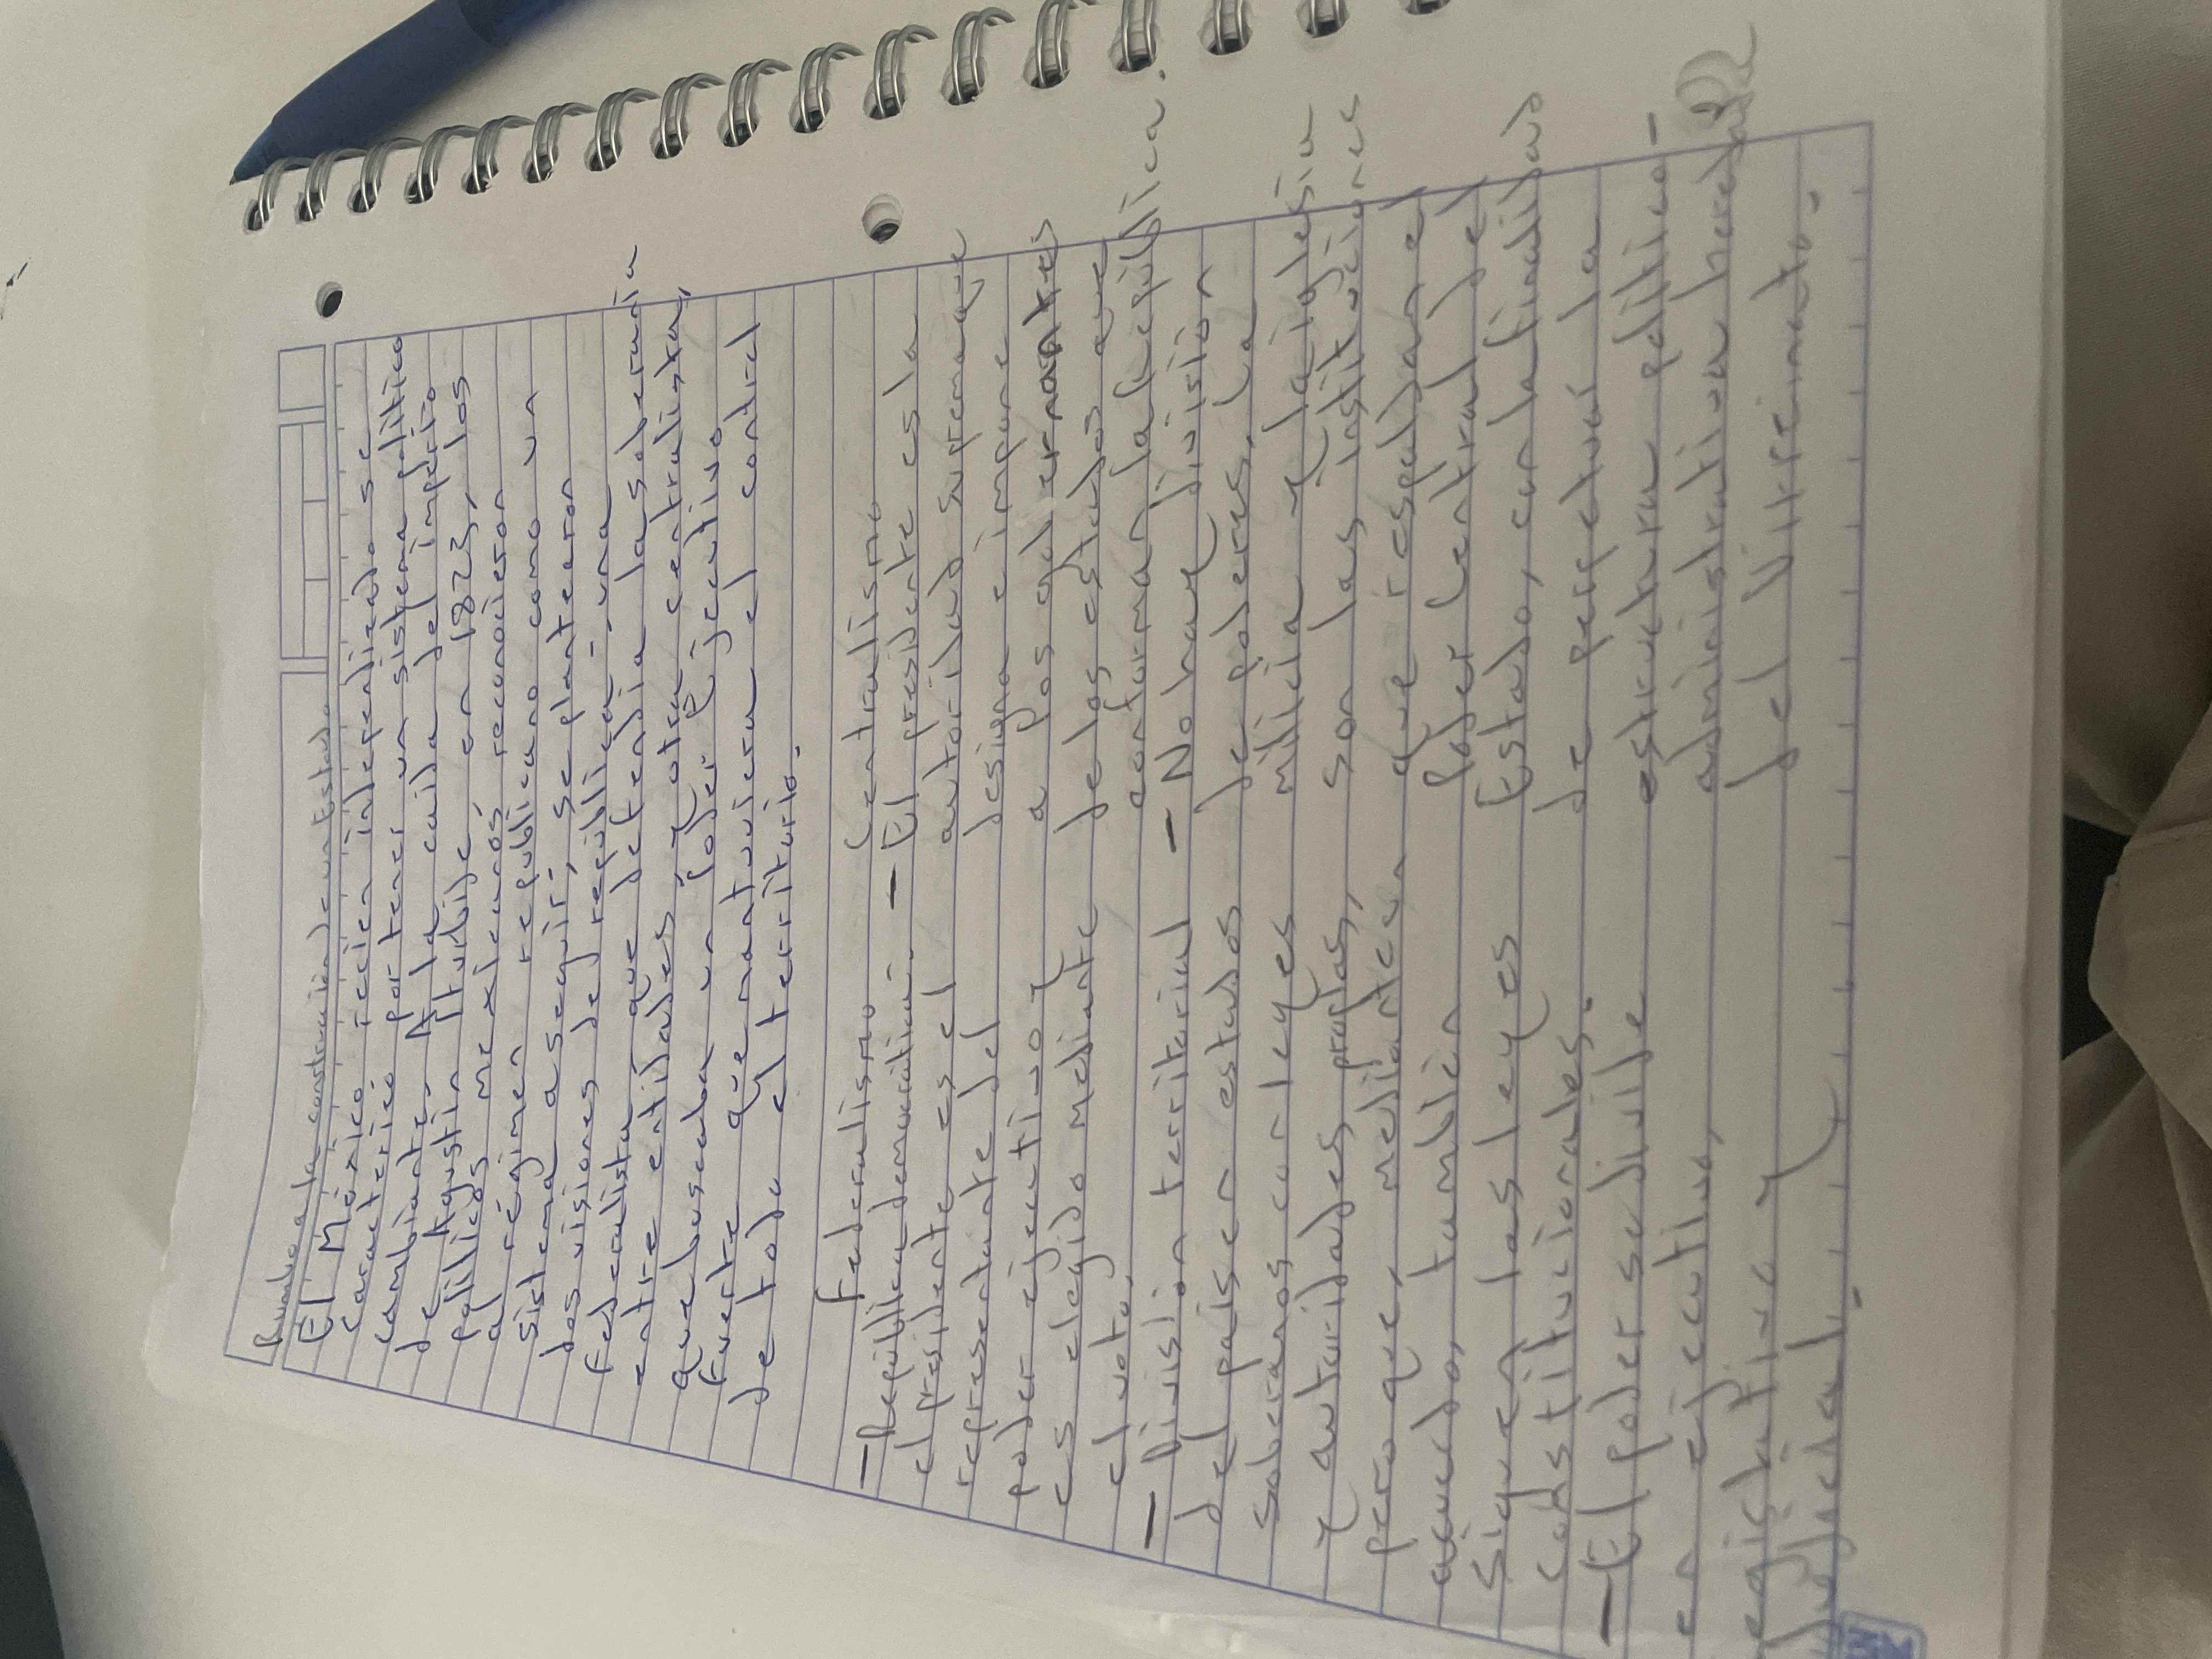 Rumbo a la construcción de un Estado
El México recién independizado se
caracterizó por tener un sistema político
cambiante. A la caída del imperio
de Agustín Iturbide, en 1823, los
políticos mexicanos reconocieron
al régimen republicano como un
sistema a seguir; se plantearon
dos visiones de república: una
federalista, que defendía la soberanía
entre entidades; y otra centralista,
que buscaba un Poder Ejecutivo
fuerte que mantuviera el control
de todo el territorio.
Federalismo
- República democrática:
el presidente es el
representante del
poder ejecutivo y
es elegido mediante
el voto.
- División territorial
del país en estados
soberanos con leyes
y autoridades propias,
pero que, mediante un
acuerdo, también
siguen las leyes
constitucionales.
- El poder se divide
en ejecutivo,
legislativo y
judicial.
Centralismo
- El presidente es la
autoridad suprema que
designa e impone
a los gobernantes
de los estados que
conforman la República.
- No hay división
de poderes. La
milicia y la iglesia
son las instituciones
que respaldan el
Poder Central del
Estado, con la finalidad
de perpetuar la
estructura político-
administrativa heredada
del Virreinato.